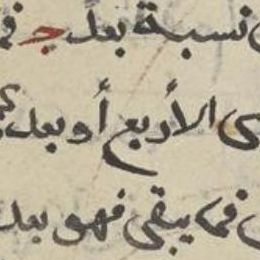 نسبة بعد ج
الأربع أو بعد
فما يبقى فهو بعد